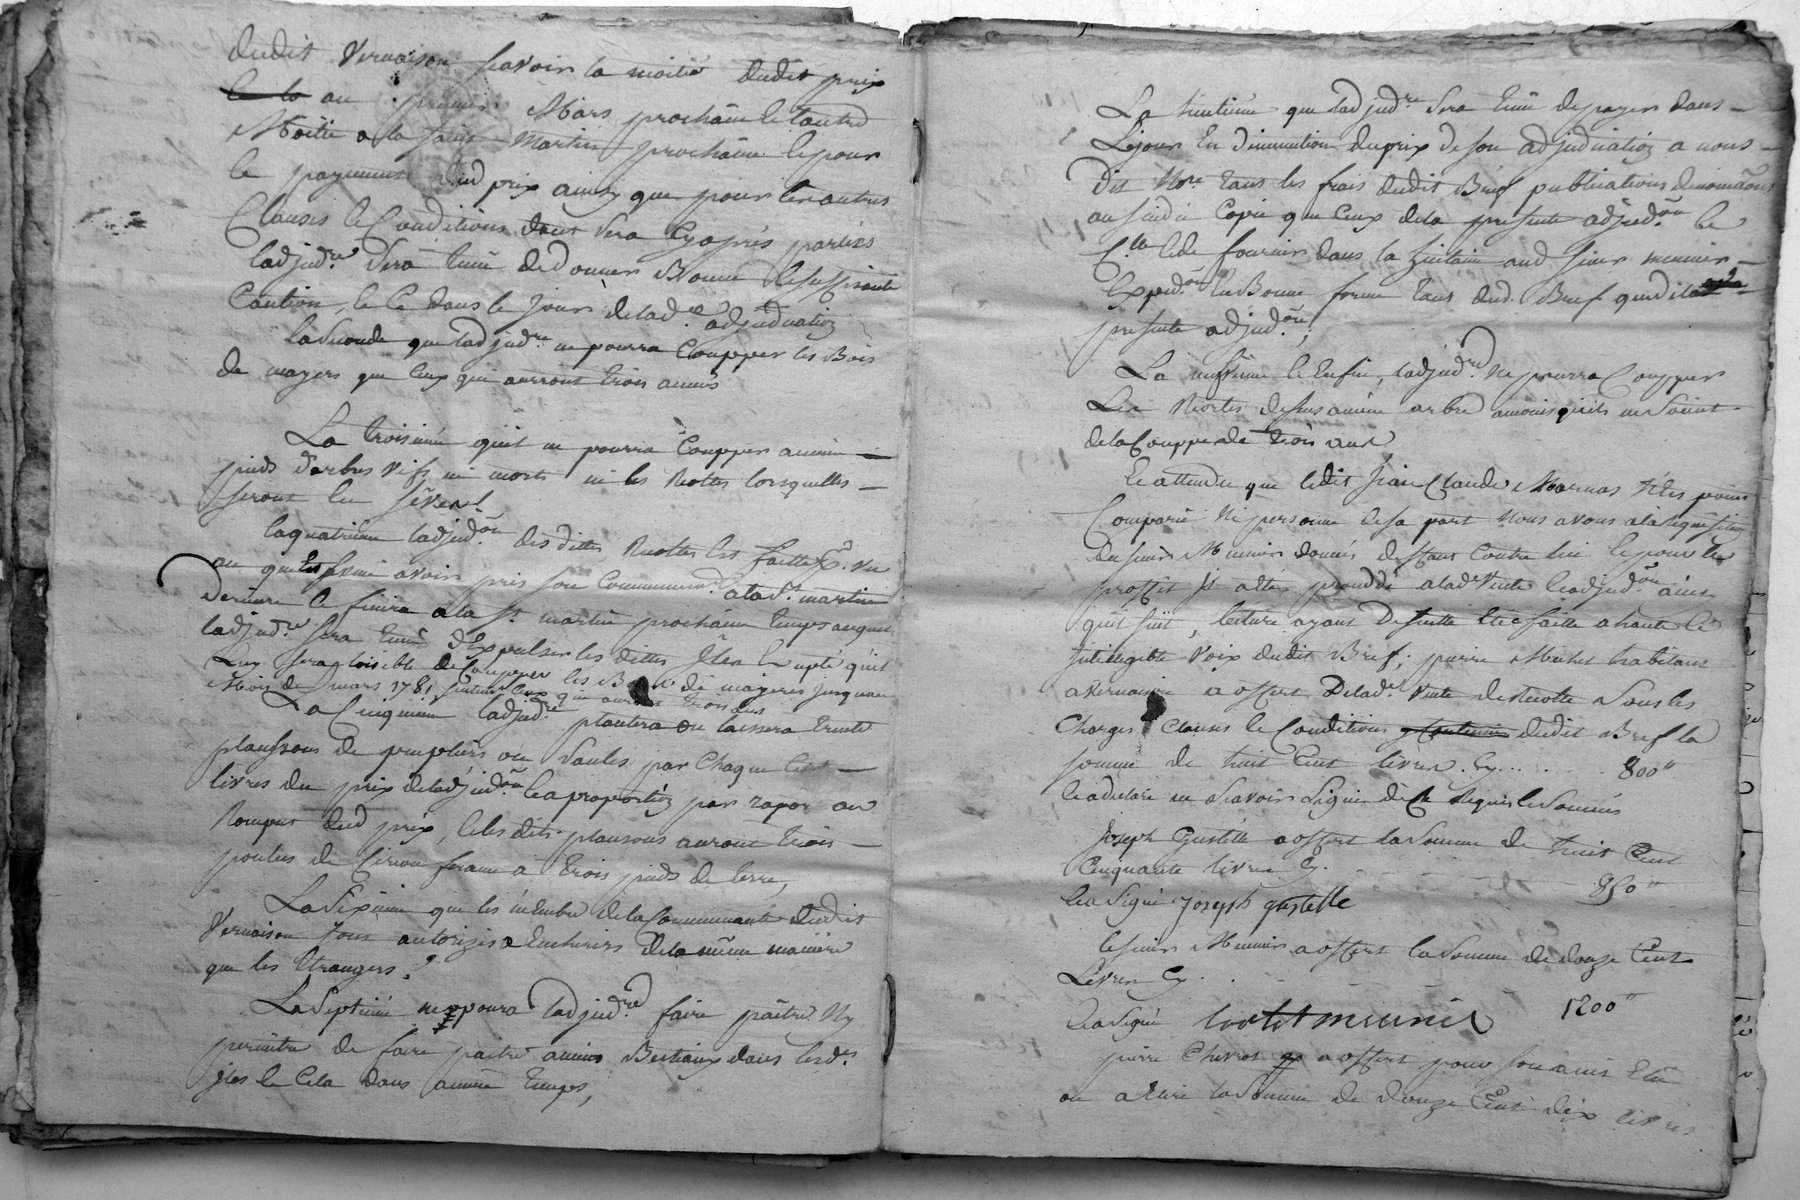 dudit Vernaison savoir la moitié dudit prix
au premier Mars prochain et l'autre
Moitié a la saint Martin prochaine et pour
le payement dud prix ainsy que pour les autres
Clauses et Conditions dont sera cy après parlé
ladjud.re sera tenu de donner bonne et suffisante
Caution, et ce dans le jour de lad.e adjudication
La seconde que ladjud.re ne pourra Coupper les Bois
de mayers que ceux qui auront trois années
La troisieme quil ne pourra Coupper aucun
pieds d'arbres vifs ni morts ni les Rottes lorsquelles
seront en sève
la quatrieme ladjud.on desdittes Rottes est faitte
avoir pris son Commencem.t a la S.t martin
derniere et finira a la S.t martin prochaine temps auquel
ladjud.re sera tenu d'Expulser lesdittes Isles Excepté quil
Luy sera loisible de Coupper les Bois de mayeres jusquau
Mois de mars 1781 seulem.t ceux qui auront trois ans
La Cinquieme ladjud.re plantera ou laissera trente
plansons de peupliers ou saules par Chaque Cent
livres du prix de ladjud.on et a proportion par raport au
Rompus dud prix, et lesdits plansons auront trois
pouces de a trois pieds de terre,
La Sixieme que les membres de la Communauté dudit
Vernaison sont autorisés a Encherir de la même manière
que les Etrangers.
La Septieme ne poura ladjud.re faire paître Ny
permettre de faire paitre aucuns Bestiaux dans lesd.es
Isles et Cela dans aucun temps,
La huitieme que ladjud.re sera tenu de payer dans
Lejour En diminution du prix de son adjudication a nous
dit No.re tous les frais dudit Bref publications
Copie que ceux de la presente adjud.on
et de fournir dans la huitaine aud Sieur meunier
Exped.on en Bonne forme tant dud. Bref que de la
presente adjud.on;
La neuvieme et Enfin, ladjud.re ne pourra Coupper
Les Rottes dessus aucun arbre amoins quils ne soient
de la Couppe de trois ans
Et attendu que ledit Jean Claude Marnas n'Est point
Comparu Ni personne de sa part Nous avons a la Requisition
du sieur Meunier donné deffaut Contre lui et pour le
proffit Il a été procedé a lad.e Vente et adjud.on ainsy
quil suit, lecture ayant De suitte Eté faitte a haute et
intelligible Voix dudit Bref, pierre Michel habitant
a Vernaison a offert De lad.e Vente des Rotte sous les
Charges Clauses et Conditions dudit Bref la
somme de huit Cent livres. Cy..... 800"
et a declaré ne scavoir Signer de ce Requis et sommé
Joseph Gustelle a offert la somme de huit Cent
Cinquante livres Cy. 850"
et a signé Joseph gustelle
le sieur Meunier a offert la somme de douze Cent
Livres Cy. 1200"
et a signé meunier
pierre Chevrot a offert pour son amis Elu
ou a Elire la somme de douze Cent dix livres